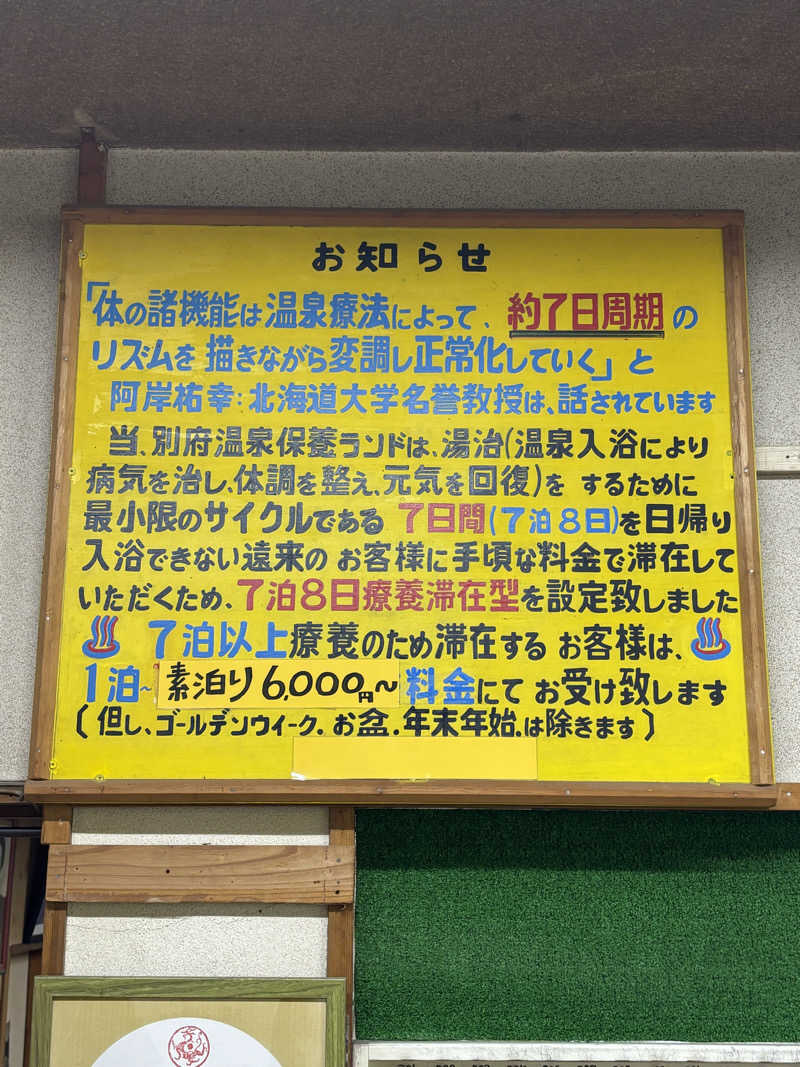 お知らせ
「体の諸機能は温泉療法によって、約7日周期の
リズムを描きながら変調し正常化していく」と
阿岸祐幸:北海道大学名誉教授は、話されています
当、別府温泉保養ランドは、湯治(温泉入浴により
病気を治し、体調を整え、元気を回復)を するために
最小限のサイクルである 7日間(7泊8日)を日帰り
入浴できない遠来の お客様に手頃な料金で滞在して
いただくため、7泊8日療養滞在型を設定致しました
7泊以上療養のため滞在する お客様は、
1泊~素泊り6,000円~料金にて お受け致します
(但し、ゴールデンウィーク.お盆.年末年始.は除きます)